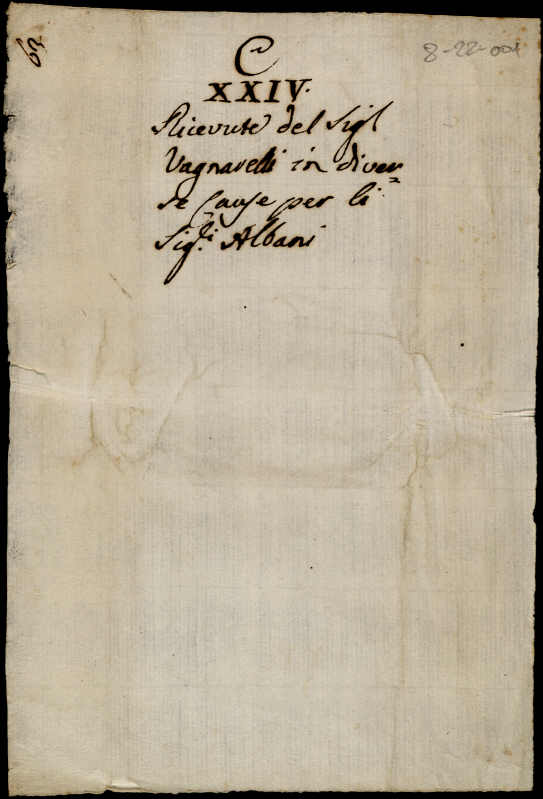 63
8-22-001
C
XXIV.
Ricevute del Sigl
Vagnarelli in diver=
se Cause per li
Sig.ri Albani